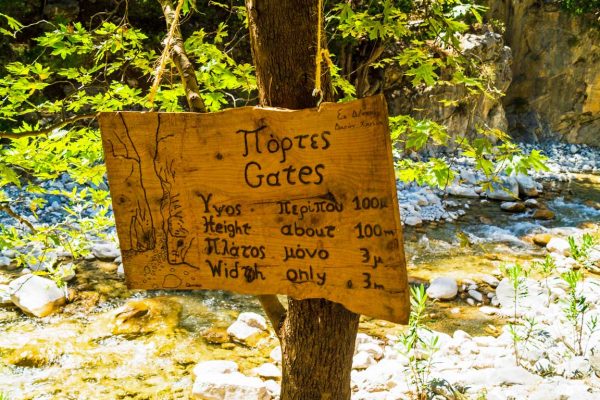 Πόρτες
Gates
Υψος περίπου 100μ
Height about 100m
Πλάτος μόνο 3μ
Width only 3m